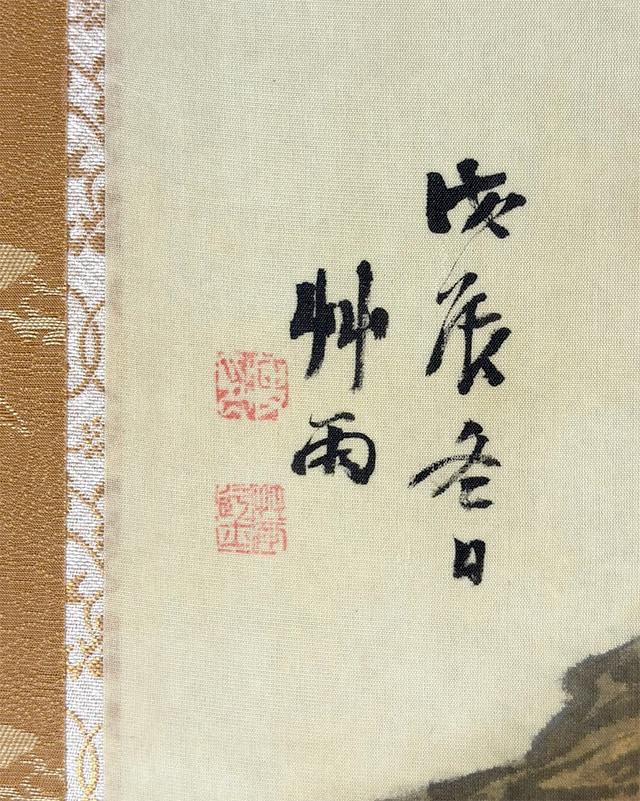 戊辰冬日
艸雨